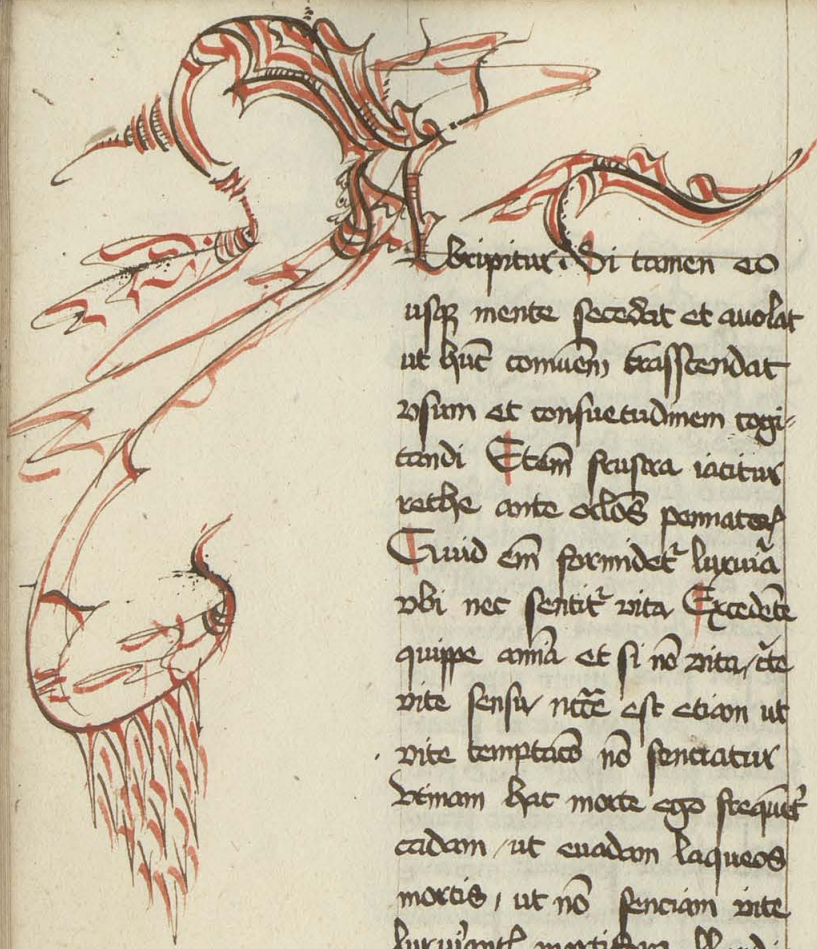 Abripitur. Si tamen eo
usqꝫ mente secedat et auolat
ut hūc comūem trāsscendat
vsum et consuetudinem cogi-
tandi Etem̄ frustra iacitur
rethe ante oclōs pennatorꝝ
Quid em̄ formidet᷑ luxuia᷑
vbi nec sentit᷑ vita Excedēte
quippe anīa et si nō vita / c᷑te
vite sensu ncc̄e est etiam ut
vite temptacō nō senciatur
Vtinam hac morte ego frequēt᷑
cadam / ut euadam laqueos
mortis / ut nō senciam vite